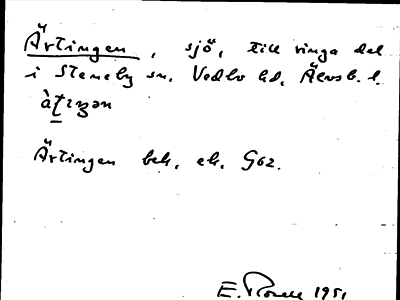 Ärtingen, sjö, till ringa del
i Steneby sn, Vedbo hd, Älvsb. l.
àt̠ɪŋən
Ärtingen bek. ek. G62.
E. 1951